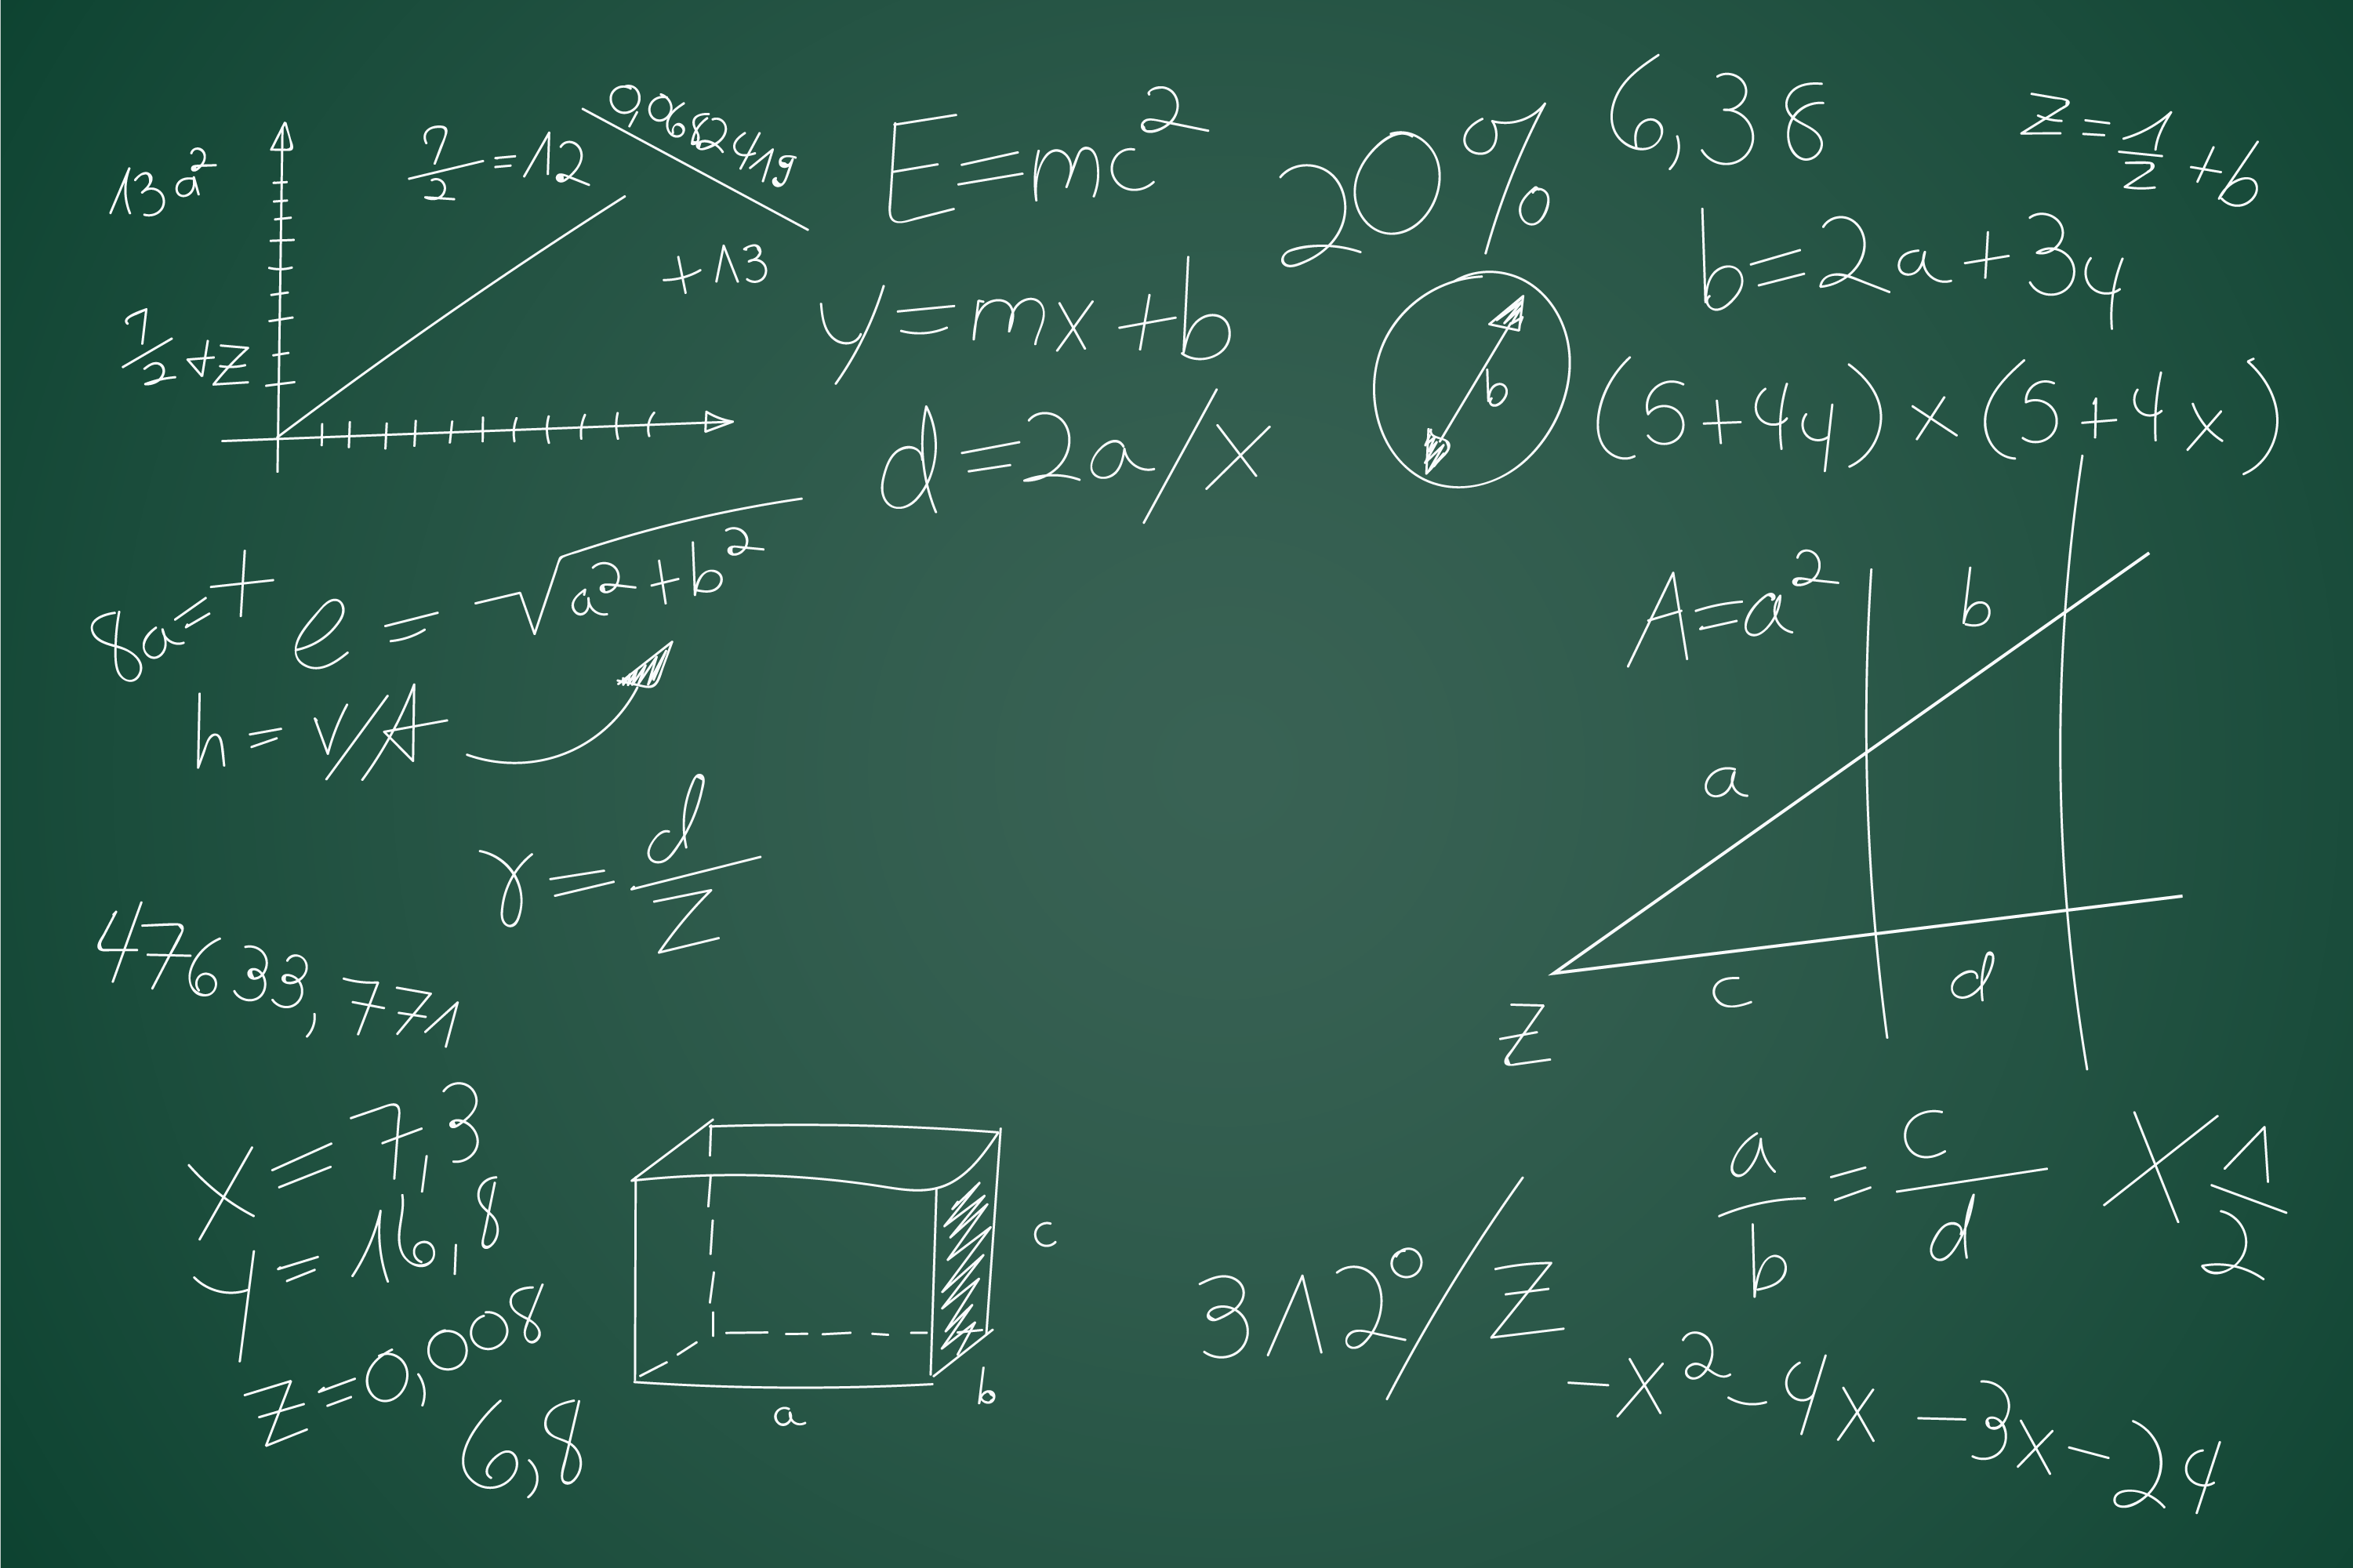 13a²
?/2 = 12
0,0682419
+13
1/2 + z
E=mc²
y=mx+b
d=2a/x
20%
b
6,38
z=1/z+b
b=2a+3y
(5+4y)×(5+4x)
8a=+
e=√a²+b²
h=V/A
γ=d/z
47633,771
A=a²
b
a
c
d
z
x=7,3
y=16,8
z=0,008
6,8
c
b
a
312°/z
a/b=c/d
x 1/2
-x²-4x-3x-24